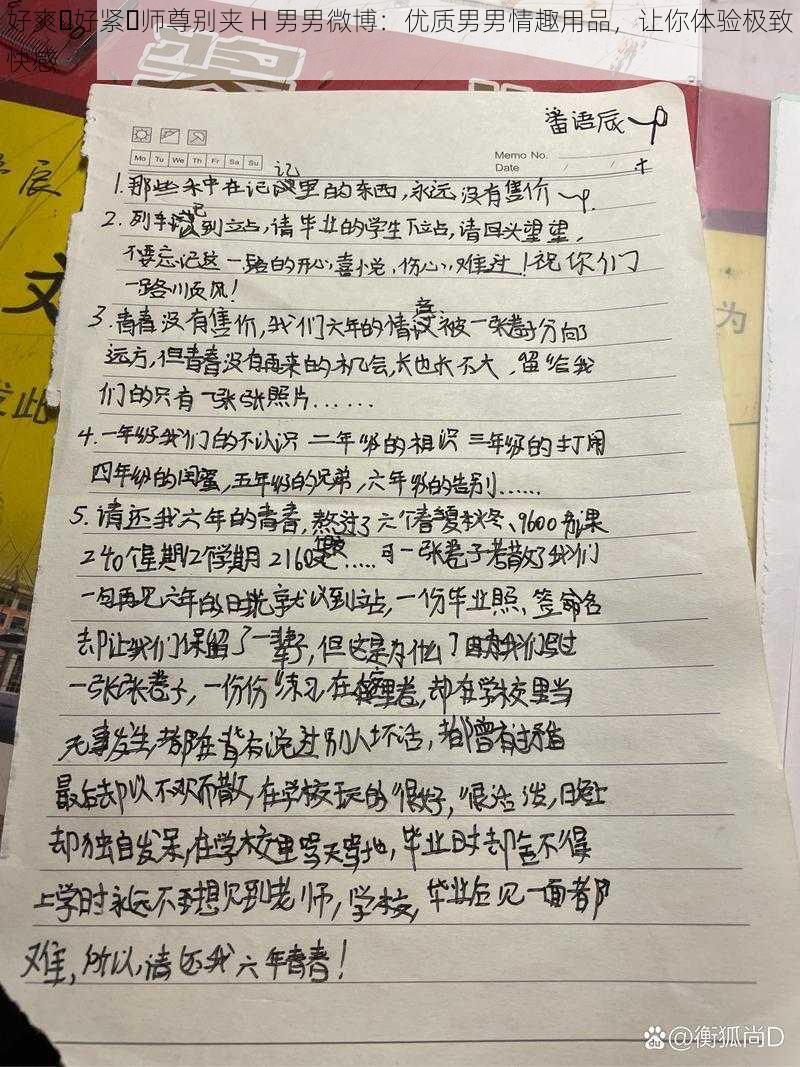 好爽好紧师尊别夹 H 男男微博：优质男男情趣用品，让你体验极致
快感
番语辰
Mo Tu We Th Fr Sa Su
Memo No.
Date / /
记
1.那些杀中在记里的东西,永远没有售价
2.列车到立占,请毕业的学生下立占,请回头望望,
不要忘记这一路的开心,喜悦,伤心,难过!祝你们
一路川页风!
3.青春没有售价,我们六年的情被一张卷子分向
远方,但青春没有再来的机会,长也长不大,留给我
们的只有一张张照片......
4.一年级我们的不认识 二年级的相识 三年级的打闹
四年级的闺蜜,五年级的兄弟,六年级的告别......
5.请还我六年的青春,熬过了六个春夏秋冬、9600节课
240个星期12个学期 2160.....可一张卷子若散了我们
一句再见六年的日就以到立占,一份毕业照,签命名
却让我们保留了一辈子,但这是为什么?因为我们写过
一张张卷子,一份份练习,在里卷,却在学校里当
无事发生,都在背有说过别人坏话,都曾有过矛盾
最后却以不欢而散,在学校玩的很好,很活泼,日晚上
却独自发呆,在学校里骂天骂地,毕业时却舍不得
上学时永远不想见到老师,学校,毕业后见一面都
难,所以,请还我六年青春!
为
发此
辰
文
Baidu @衡狐尚D